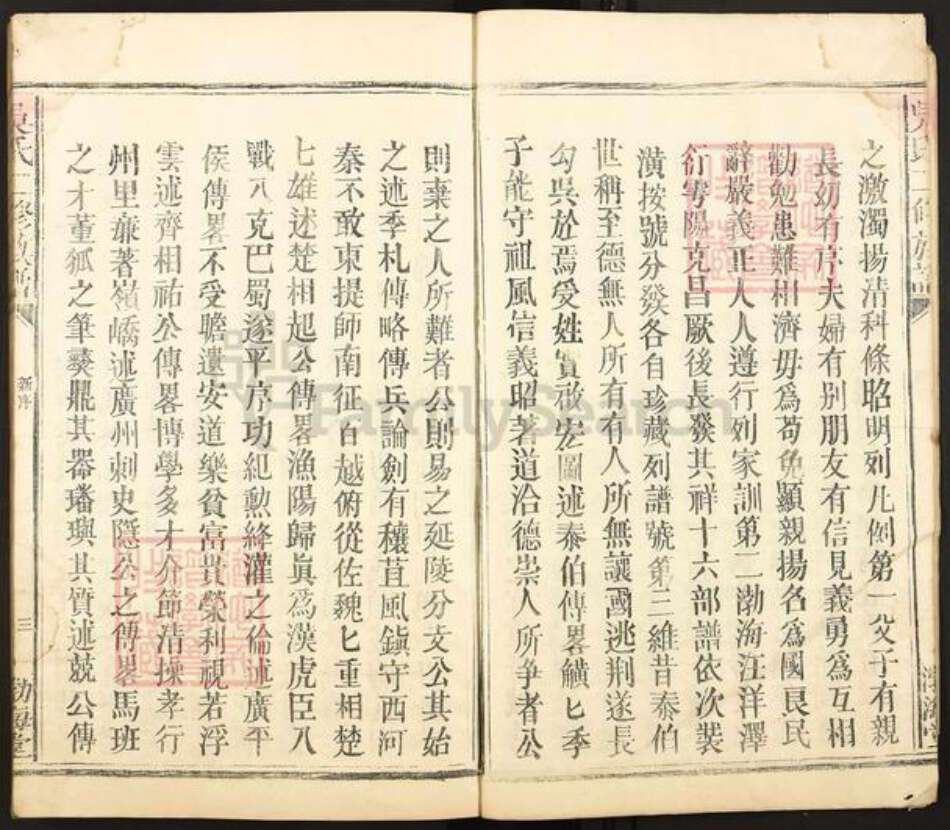 之激濁揚清科條昭明列凡例第一父子有親
長幼有序夫婦有别朋友有信見義勇爲互相
勸勉患難相濟毋爲苟免顯親揚名爲國良民
辭嚴義正人人遵行列家訓第二渤海汪洋澤
衍雩陽克昌厥後長發其祥十六部譜依次裝
潢按號分發各自珍藏列譜號第三維昔泰伯
世稱至德無人所有有人所無讓國逃荆遂長
勾吳於焉受姓實啟宏圖述泰伯傳畧續七季
子能守祖風信義昭著道洽德崇人所爭者公
則棄之人所難者公則易之延陵分支公其始
之述季札傳略傳兵論劍有穰苴風鎮守西河
秦不敢東提師南征百越俯從佐魏七重相楚
七雄述楚相起公傳畧漁陽歸眞爲漢虎臣八
戰八克巴蜀遂平序功紀勲絳灌之倫述廣平
侯傳畧不受贍遺安道樂貧富貴榮利視若浮
雲述齊相祐公傳畧博學多才介節清操孝行
州里亷著嶺嶠述廣州刺史隱公之傳畧馬班
之才董狐之筆彝鼎其器璠璵其質述兢公傳
新序
三
渤海堂
FamilySearch